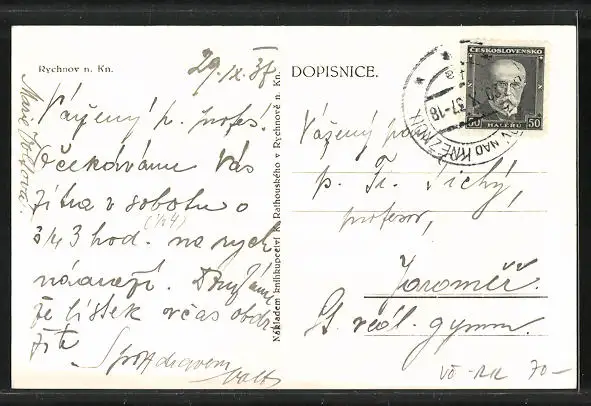 Rychnov n. Kn.
29. IX. 37
Vážený p. profes.
Očekáváme Vás
zítra v sobotu o
(1/4 4)
3/4 3 hod. na rych.
nádraží. Doufám,
že lístek včas obdr-
žíte
S pozdravem
Nákladem knihkupectví K. Rathouského v Rychnově n. Kn.
DOPISNICE.
ČESKOSLOVENSKO
50 HALÉŘŮ 50
NAD KNĚŽNOU
37-18
Vážený pan
p. Fr. Tichý,
profesor,
Jaroměř.
St. reál. gymn.
VÖ-RK 70-